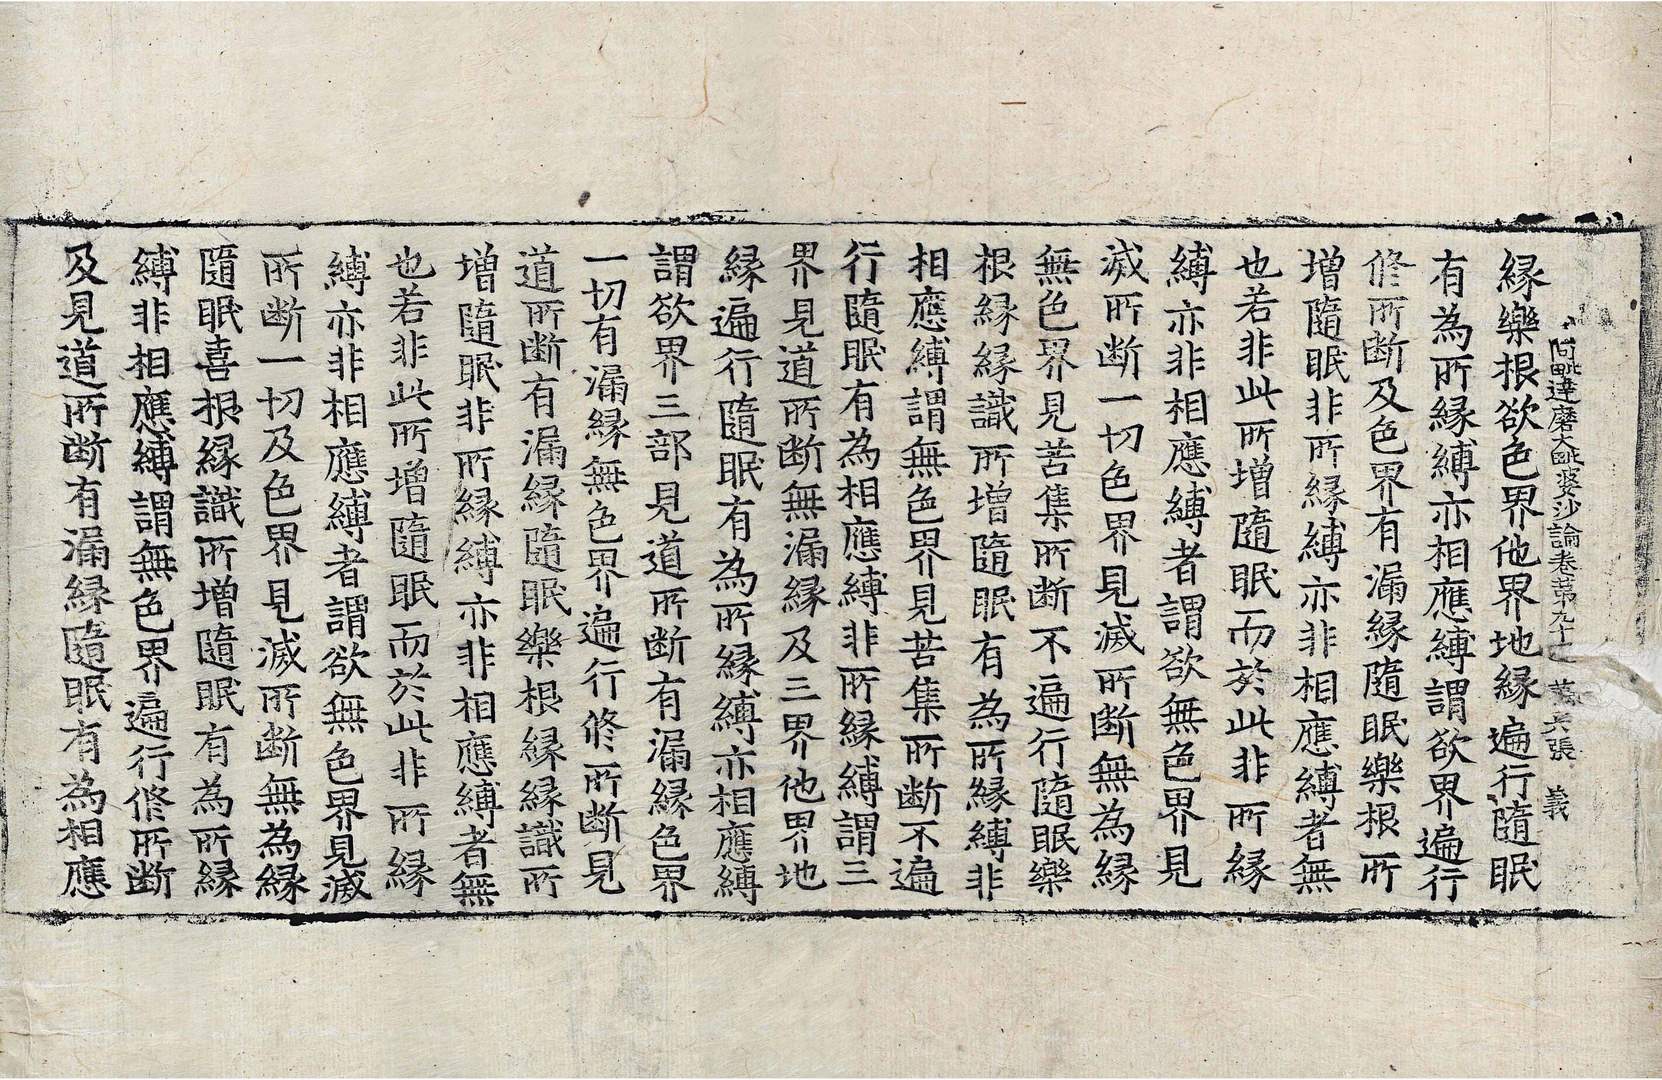 阿毗達磨大毗婆沙論卷第九十 張 義
緣樂根欲色界他界地緣遍行隨眠
有為所緣縛亦相應縛謂欲界遍行
修所斷及色界有漏緣隨眠樂根所
增隨眠非所緣縛亦非相應縛者無
也若非此所增隨眠而於此非所緣
縛亦非相應縛者謂欲無色界見
滅所斷一切色界見滅所斷無為緣
無色界見苦集所斷不遍行隨眠樂
根緣緣識所增隨眠有為所緣縛非
相應縛謂無色界見苦集所斷不遍
行隨眠有為相應縛非所緣縛謂三
界見道所斷無漏緣及三界他界地
緣遍行隨眠有為所緣縛亦相應縛
謂欲界三部見道所斷有漏緣色界
一切有漏緣無色界遍行修所斷見
道所斷有漏緣隨眠樂根緣緣識所
增隨眠非所緣縛亦非相應縛者無
也若非此所增隨眠而於此非所緣
縛亦非相應縛者謂欲無色界見滅
所斷一切及色界見滅所斷無為緣
隨眠喜根緣識所增隨眠有為所緣
縛非相應縛謂無色界遍行修所斷
及見道所斷有漏緣隨眠有為相應